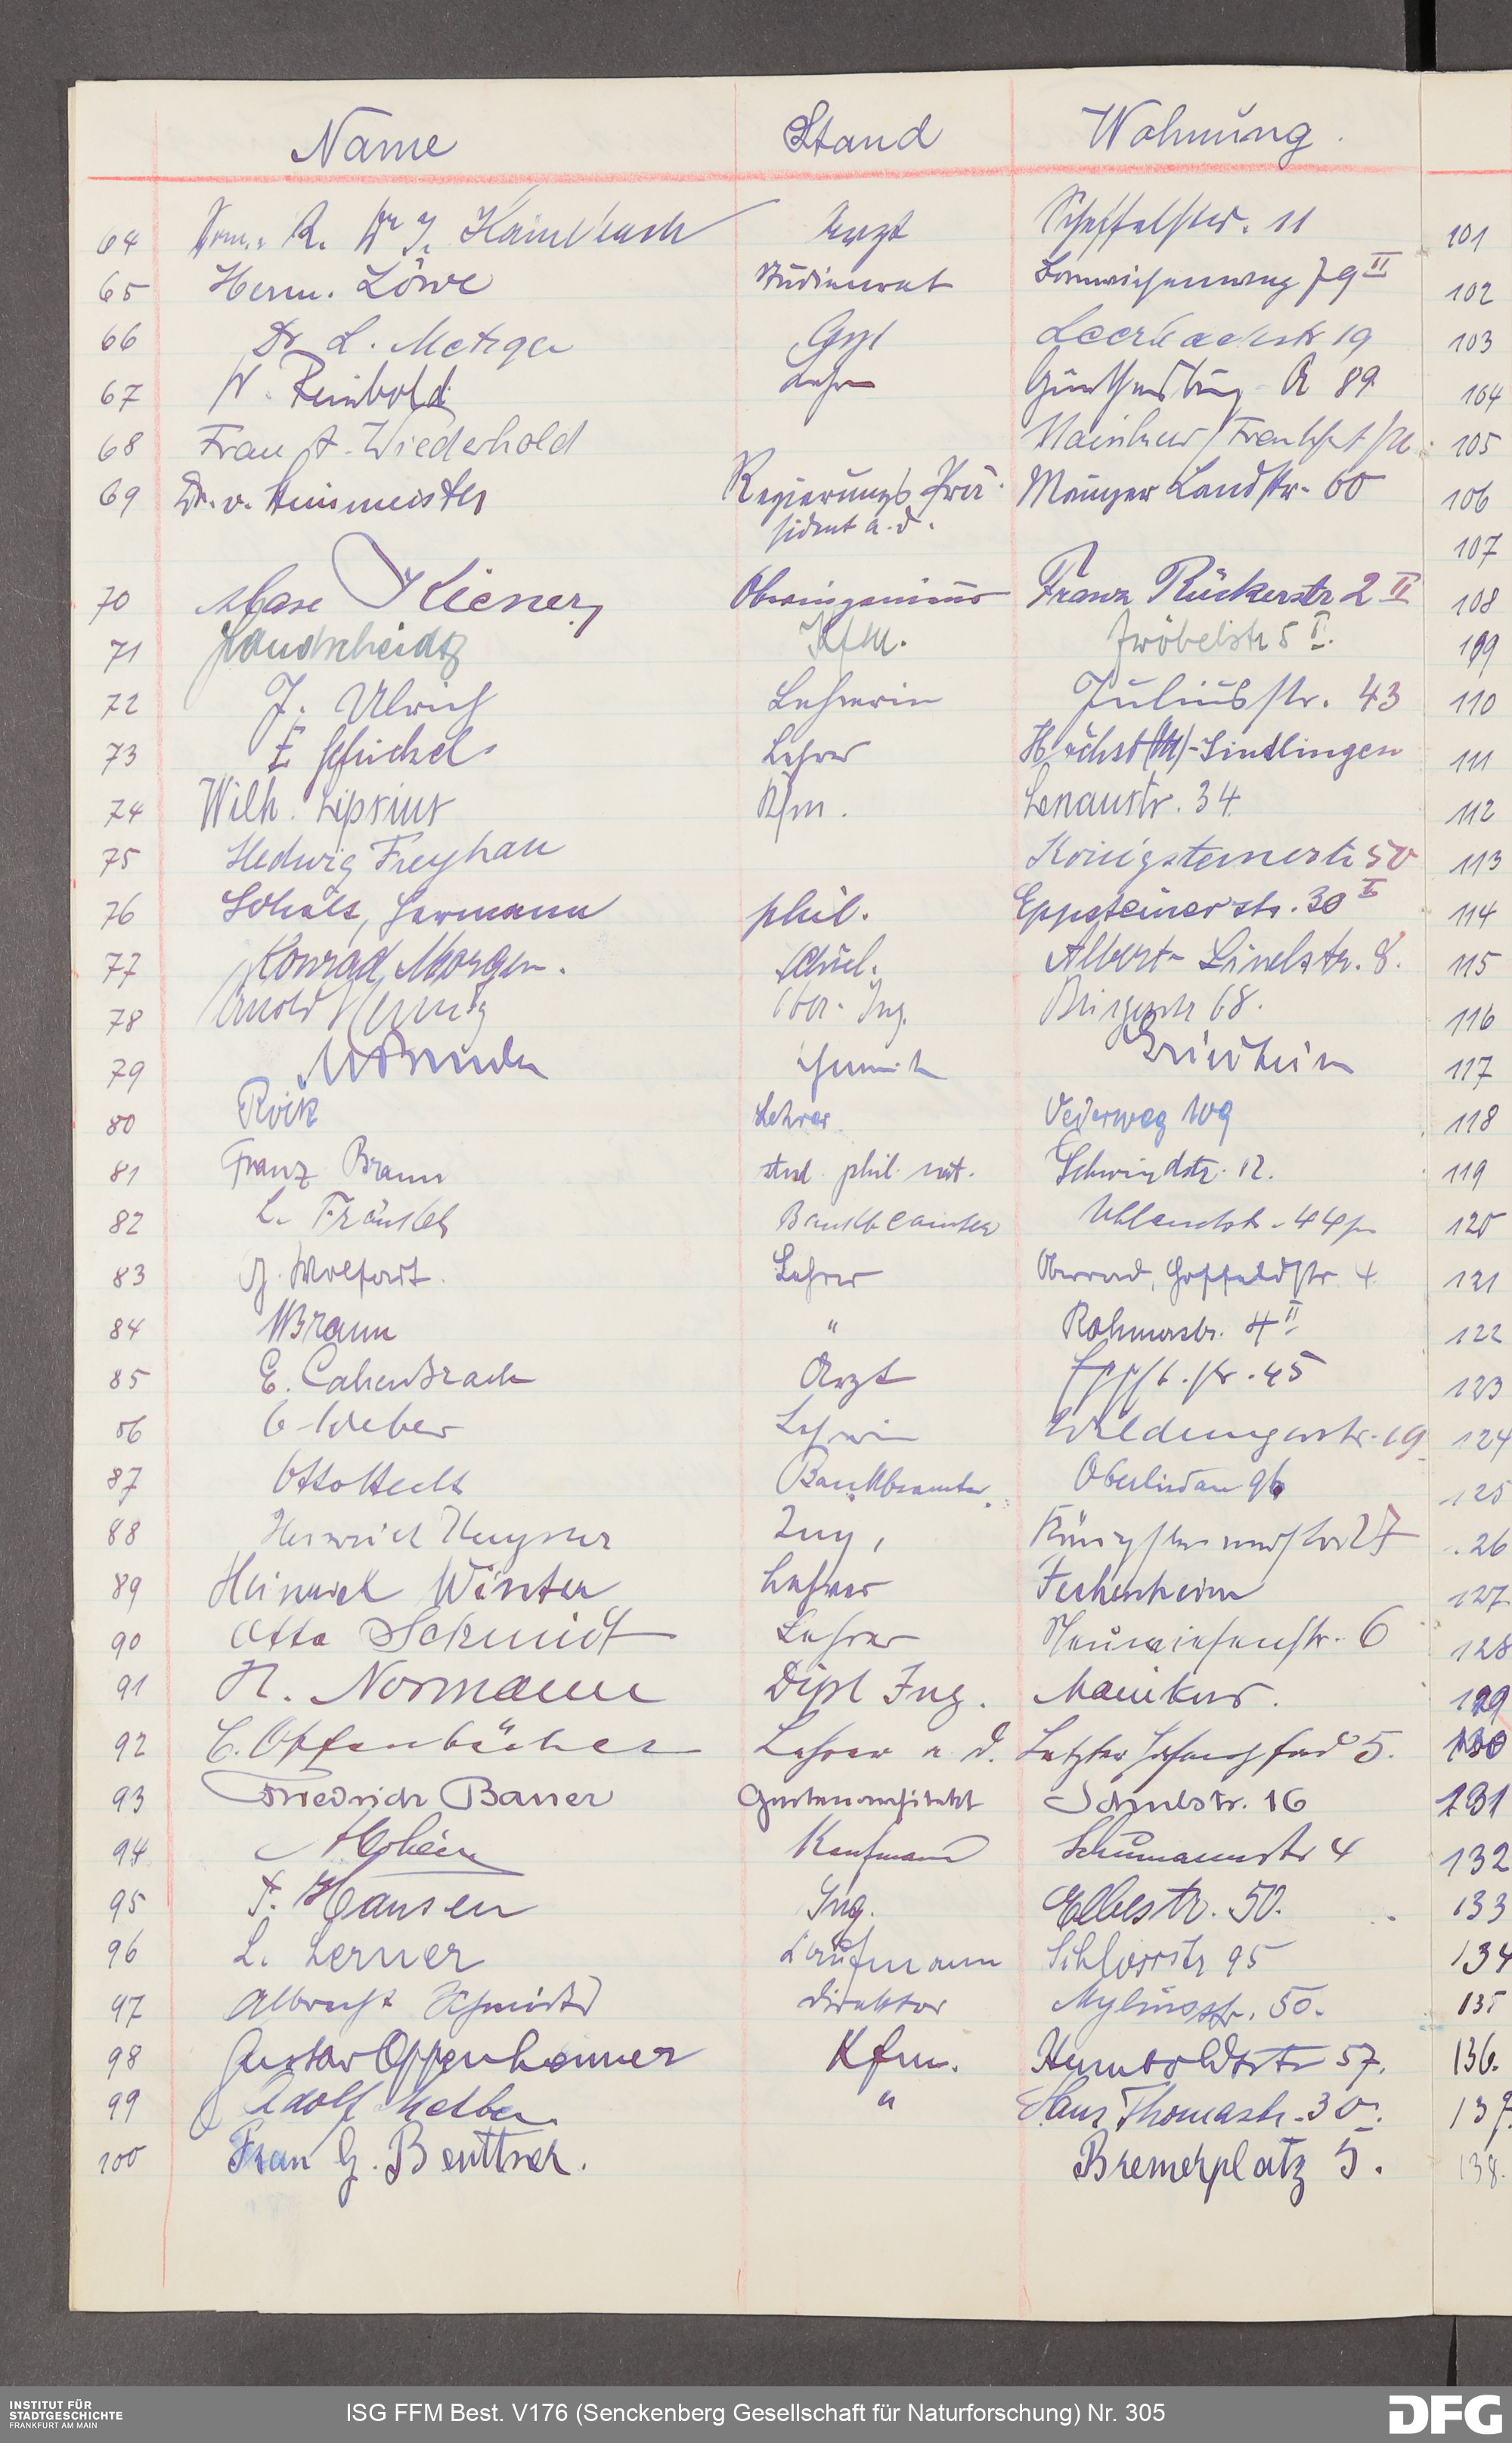 Name Stand Wohnung.
64 Arzt Scheffelstr. 11 101
65 Herm. Löwe Studienrat Bornwiesenweg 79 II 102
66 Dr L. Metzger Leerbachstr 19 103
67 W. Reinbold Lehrer Günthersburg A 89 104
68 Frau A. Wiederhold Mainkur / Frankfurt 105
69 Dr. v. Regierungs Prä- Mainzer Landstr. 60 106
sident a. d. 107
70 Kiener Oberingenieur Franz Rückerstr 2 II 108
71 Kfm. Fröbelstr 5 I. 109
72 J. Ulrich Lehrerin Juliusstr. 43 110
73 E Lehrer Höchst (M)-Sindlingen 111
74 Wilh. Lipsius Kfm. Lenaustr. 34 112
75 Hedwig Freyhan Königsteinerstr 50 113
76 Scholz, Hermann phil. Eppsteinerstr. 30 I 114
77 Konrad Morgen. Schül. Albert- Linelstr. 8. 115
78 Arnold Hennig Ober-Ing. 68. 116
79 Griesheim 117
80 Lehrer Oederweg 109 118
81 Franz Braun stud. phil. nat. Schwindstr. 12. 119
82 L. Fränkel Bankbeamter Uhlandstr. 44 p 120
83 Lehrer Oberrad, str. 4. 121
84 W Braun " Rohmerstr. 4 II 122
85 E. Cahen Brach Arzt 45 123
86 Weber Lehrerin Wildungerstr. 19 124
87 Otto Hecht Bankbeamter Oberlindau 96 125
88 Heinrich Ing, Königsteinerstr 27 26
89 Heinrich Winter Lehrer Fechenheim 127
90 Otto Schmidt Lehrer str. 6 128
91 H. Normann Dipl Ing. Mainkur. 129
92 C. Opfenbücher Lehrer a. d. Letzter Hasenpfad 5. 130
93 Friedrich Bauer Gartenarchitekt str. 16 131
94 Kaufmann Schumannstr 4 132
95 F. Hansen Ing. Elbestr. 50. 133
96 L. Lerner Kaufmann Schlossstr 95 134
97 Albrecht Schmidt Direktor Myliusstr. 50. 135
98 Gustav Oppenheimer Kfm. Humboldtstr 57. 136.
99 Adolf Melber " Hans Thomastr. 30. 137.
100 Frau G. Beuttner. Bremerplatz 5. 138.
INSTITUT FÜR
STADTGESCHICHTE
FRANKFURT AM MAIN
ISG FFM Best. V176 (Senckenberg Gesellschaft für Naturforschung) Nr. 305
DFG